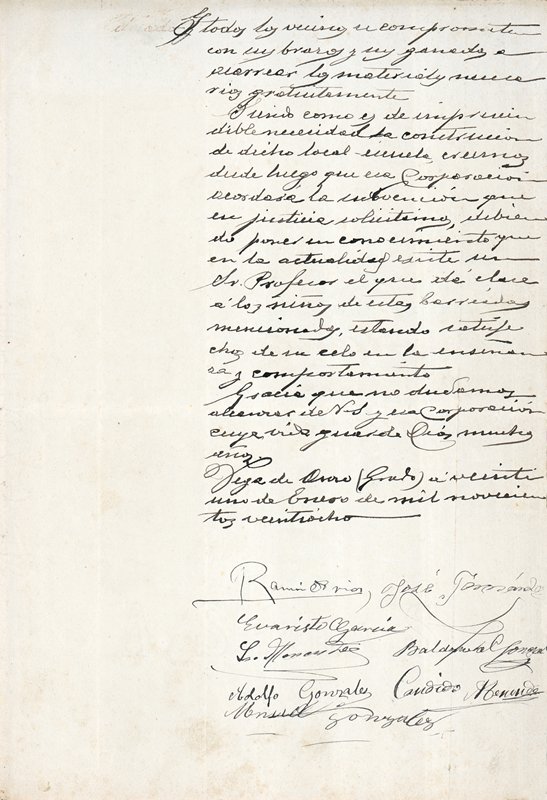 todos los vecinos se comprometen
con sus brazos y sus ganados a
acarrear los materiales necesa
rios gratuitamente
Siendo como es de imprescin
dible necesidad la construccion
de dicho local escuela creemos
desde luego que esa Corporación
acordará la subvención que
en justicia solicitamos, debien
do poner en conocimiento que
en la actualidad existe un
Sr. Profesor el que dá clase
á los niños de estas barriadas
mencionadas, estando satisfe
chos de su celo en la enseñan
za y comportamiento
Gracia que no dudamos
alcanzar de V.S. y esa Corporación
cuya vida guarde Dios muchos
años.
Vega de (Grado) á veinti
uno de Enero de mil novecien
tos veintiocho
Ramón José Fernández
Evaristo Garcia
Menendez Baldomero
Adolfo Gonzalez Candido Menendez
Manuel Gonzalez